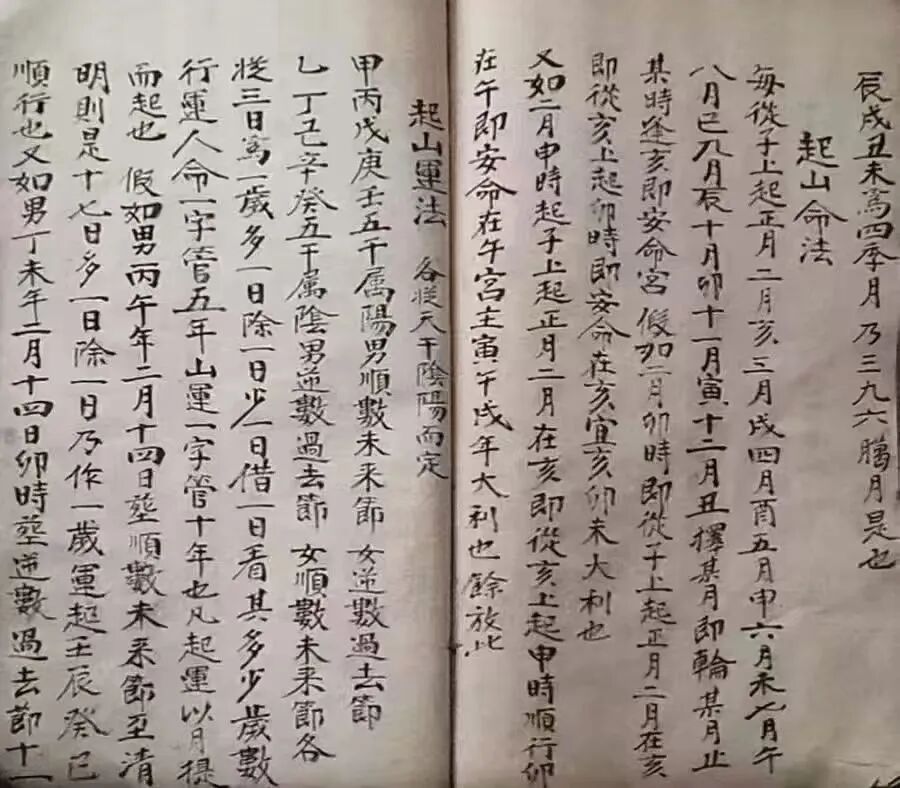 辰戌丑未為四季月乃三九六臘月是也
起山命法
每從子上起正月二月亥三月戌四月酉五月申六月未七月午
八月巳九月辰十月卯十一月寅十二月丑擇某月即輪某月止
某時逢亥即安命宮假如二月卯時即從子上起正月二月在亥
即從亥上起卯時即安命在亥宜亥卯未大利也
又如二月申時起子上起正月二月在亥即從亥上起申時順行卯
在午即安命在午宮主寅午戌年大利也餘放此
起山運法 各從天干陰陽而定
甲丙戊庚壬五干属陽男順數未來節女逆數過去節
乙丁己辛癸五干属陰男逆數過去節女順數未來節各
從三日為一歲多一日除一日少一日借一日看其多少歲數
行運人命一字管五年山運一字管十年也凡起運以月提
而起也 假如男丙午年二月十四日塟順數未来節至清
明則是十七日多一日除一日乃作一歲運起壬辰癸巳
順行也又如男丁未年二月十四日卯時塟逆數過去節十一